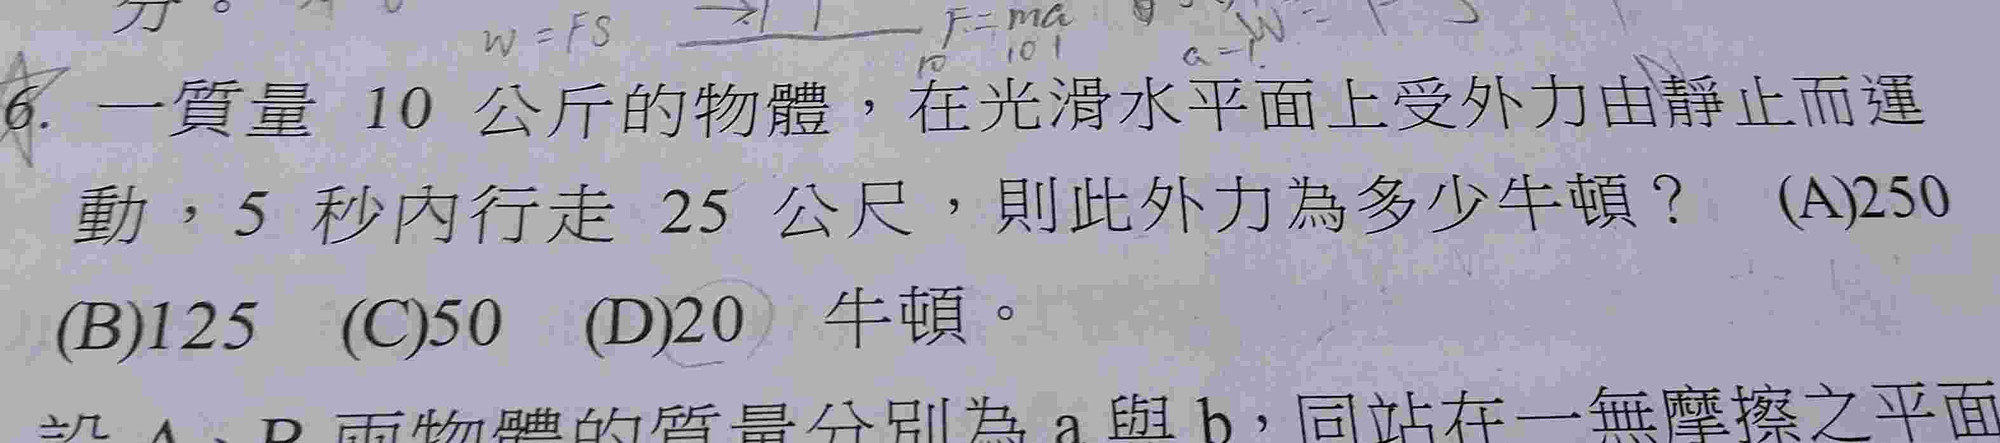 分。
W = FS
F = ma
10 10 1
a = 1
6. 一質量 10 公斤的物體，在光滑水平面上受外力由靜止而運
動，5 秒內行走 25 公尺，則此外力為多少牛頓？ (A)250
(B)125 (C)50 (D)20 牛頓。
設 A、B 兩物體的質量分別為 a 與 b，同站在一無摩擦之平面